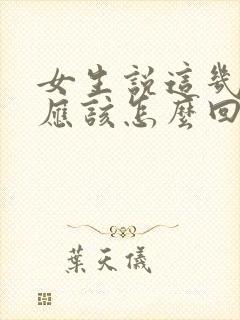 女生說這幾
應該怎麼回
葉天儀